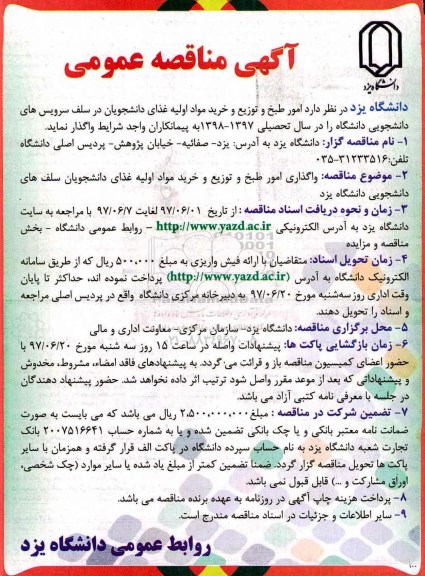 دانشگاه یزد
آگهی مناقصه عمومی
دانشگاه یزد در نظر دارد امور طبخ و توزیع و خرید مواد اولیه غذای دانشجویان در سلف سرویس های
دانشجویی دانشگاه را در سال تحصیلی ۱۳۹۷-۱۳۹۸ به پیمانکاران واجد شرایط واگذار نماید.
۱- نام مناقصه گزار: دانشگاه یزد به آدرس: یزد- صفائیه- خیابان پژوهش- پردیس اصلی دانشگاه
تلفن: ۳۱۲۳۳۵۱۶-۰۳۵
۲- موضوع مناقصه: واگذاری امور طبخ و توزیع و خرید مواد اولیه غذای دانشجویان سلف های
دانشجویی دانشگاه یزد
۳- زمان و نحوه دریافت اسناد مناقصه : از تاریخ ۹۷/۰۶/۰۱ لغایت ۹۷/۰۶/۷ با مراجعه به سایت
دانشگاه یزد به آدرس الکترونیکی http://www.yazd.ac.ir - روابط عمومی دانشگاه - بخش
مناقصه و مزایده
۴- زمان تحویل اسناد: متقاضیان با ارائه فیش واریزی به مبلغ ۵۰۰.۰۰۰ ریال که از طریق سامانه
الکترونیک دانشگاه به آدرس (http://www.yazd.ac.ir) پرداخت نموده اند، حداکثر تا پایان
وقت اداری روز سه‌شنبه مورخ ۹۷/۰۶/۲۰ به دبیرخانه مرکزی دانشگاه واقع در پردیس اصلی مراجعه
و اسناد را تحویل دهند.
۵- محل برگزاری مناقصه: دانشگاه یزد- سازمان مرکزی- معاونت اداری و مالی
۶- زمان بازگشایی پاکت ها: پیشنهادات واصله در ساعت ۱۵ روز سه شنبه مورخ ۹۷/۰۶/۲۰ با
حضور اعضای کمیسیون مناقصه باز و قرائت می گردد. به پیشنهادهای فاقد امضاء، مشروط، مخدوش
و پیشنهاداتی که بعد از موعد مقرر واصل شود ترتیب اثر داده نخواهد شد. حضور پیشنهاد دهندگان
در جلسه با معرفی نامه کتبی آزاد می باشد.
۷- تضمین شرکت در مناقصه : مبلغ ۲,۵۰۰,۰۰۰,۰۰۰ ریال می باشد که می بایست به صورت
ضمانت نامه معتبر بانکی و یا چک بانکی تضمین شده و یا به شماره حساب ۲۰۰۷۵۱۶۶۴۱ بانک
تجارت شعبه دانشگاه یزد به نام حساب سپرده دانشگاه در پاکت الف قرار گرفته و همزمان با سایر
پاکت ها تحویل مناقصه گزار گردد. ضمنا تضمین کمتر از مبلغ یاد شده یا سایر موارد (چک شخصی،
اوراق مشارکت و ...) قابل قبول نمی باشد.
۸- پرداخت هزینه چاپ آگهی در روزنامه به عهده برنده مناقصه می باشد.
۹- سایر اطلاعات و جزئیات در اسناد مناقصه مندرج است.
روابط عمومی دانشگاه یزد
۱۰۰